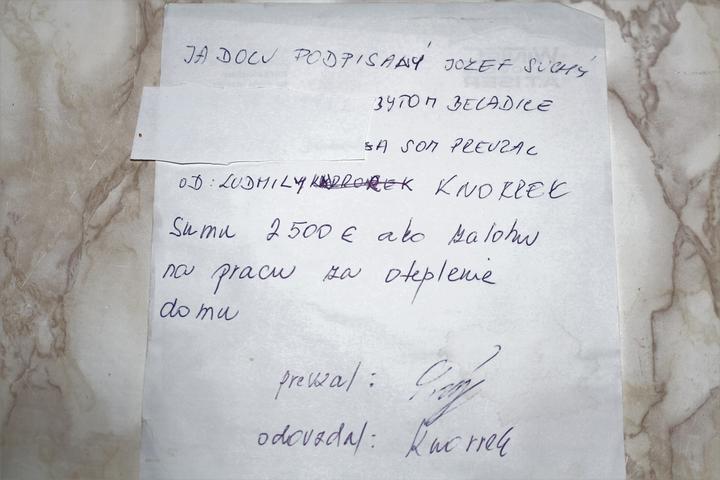 JA DOLU PODPISANÝ JOZEF SUCHÝ
BYTOM BELADICE
SA SOM PREVZAL
OD: LUDMILY KNORREK
Sumu 2500 € ako zalohu
na pracu za oteplenie
domu
prevzal:
odovzdal: Knorrek